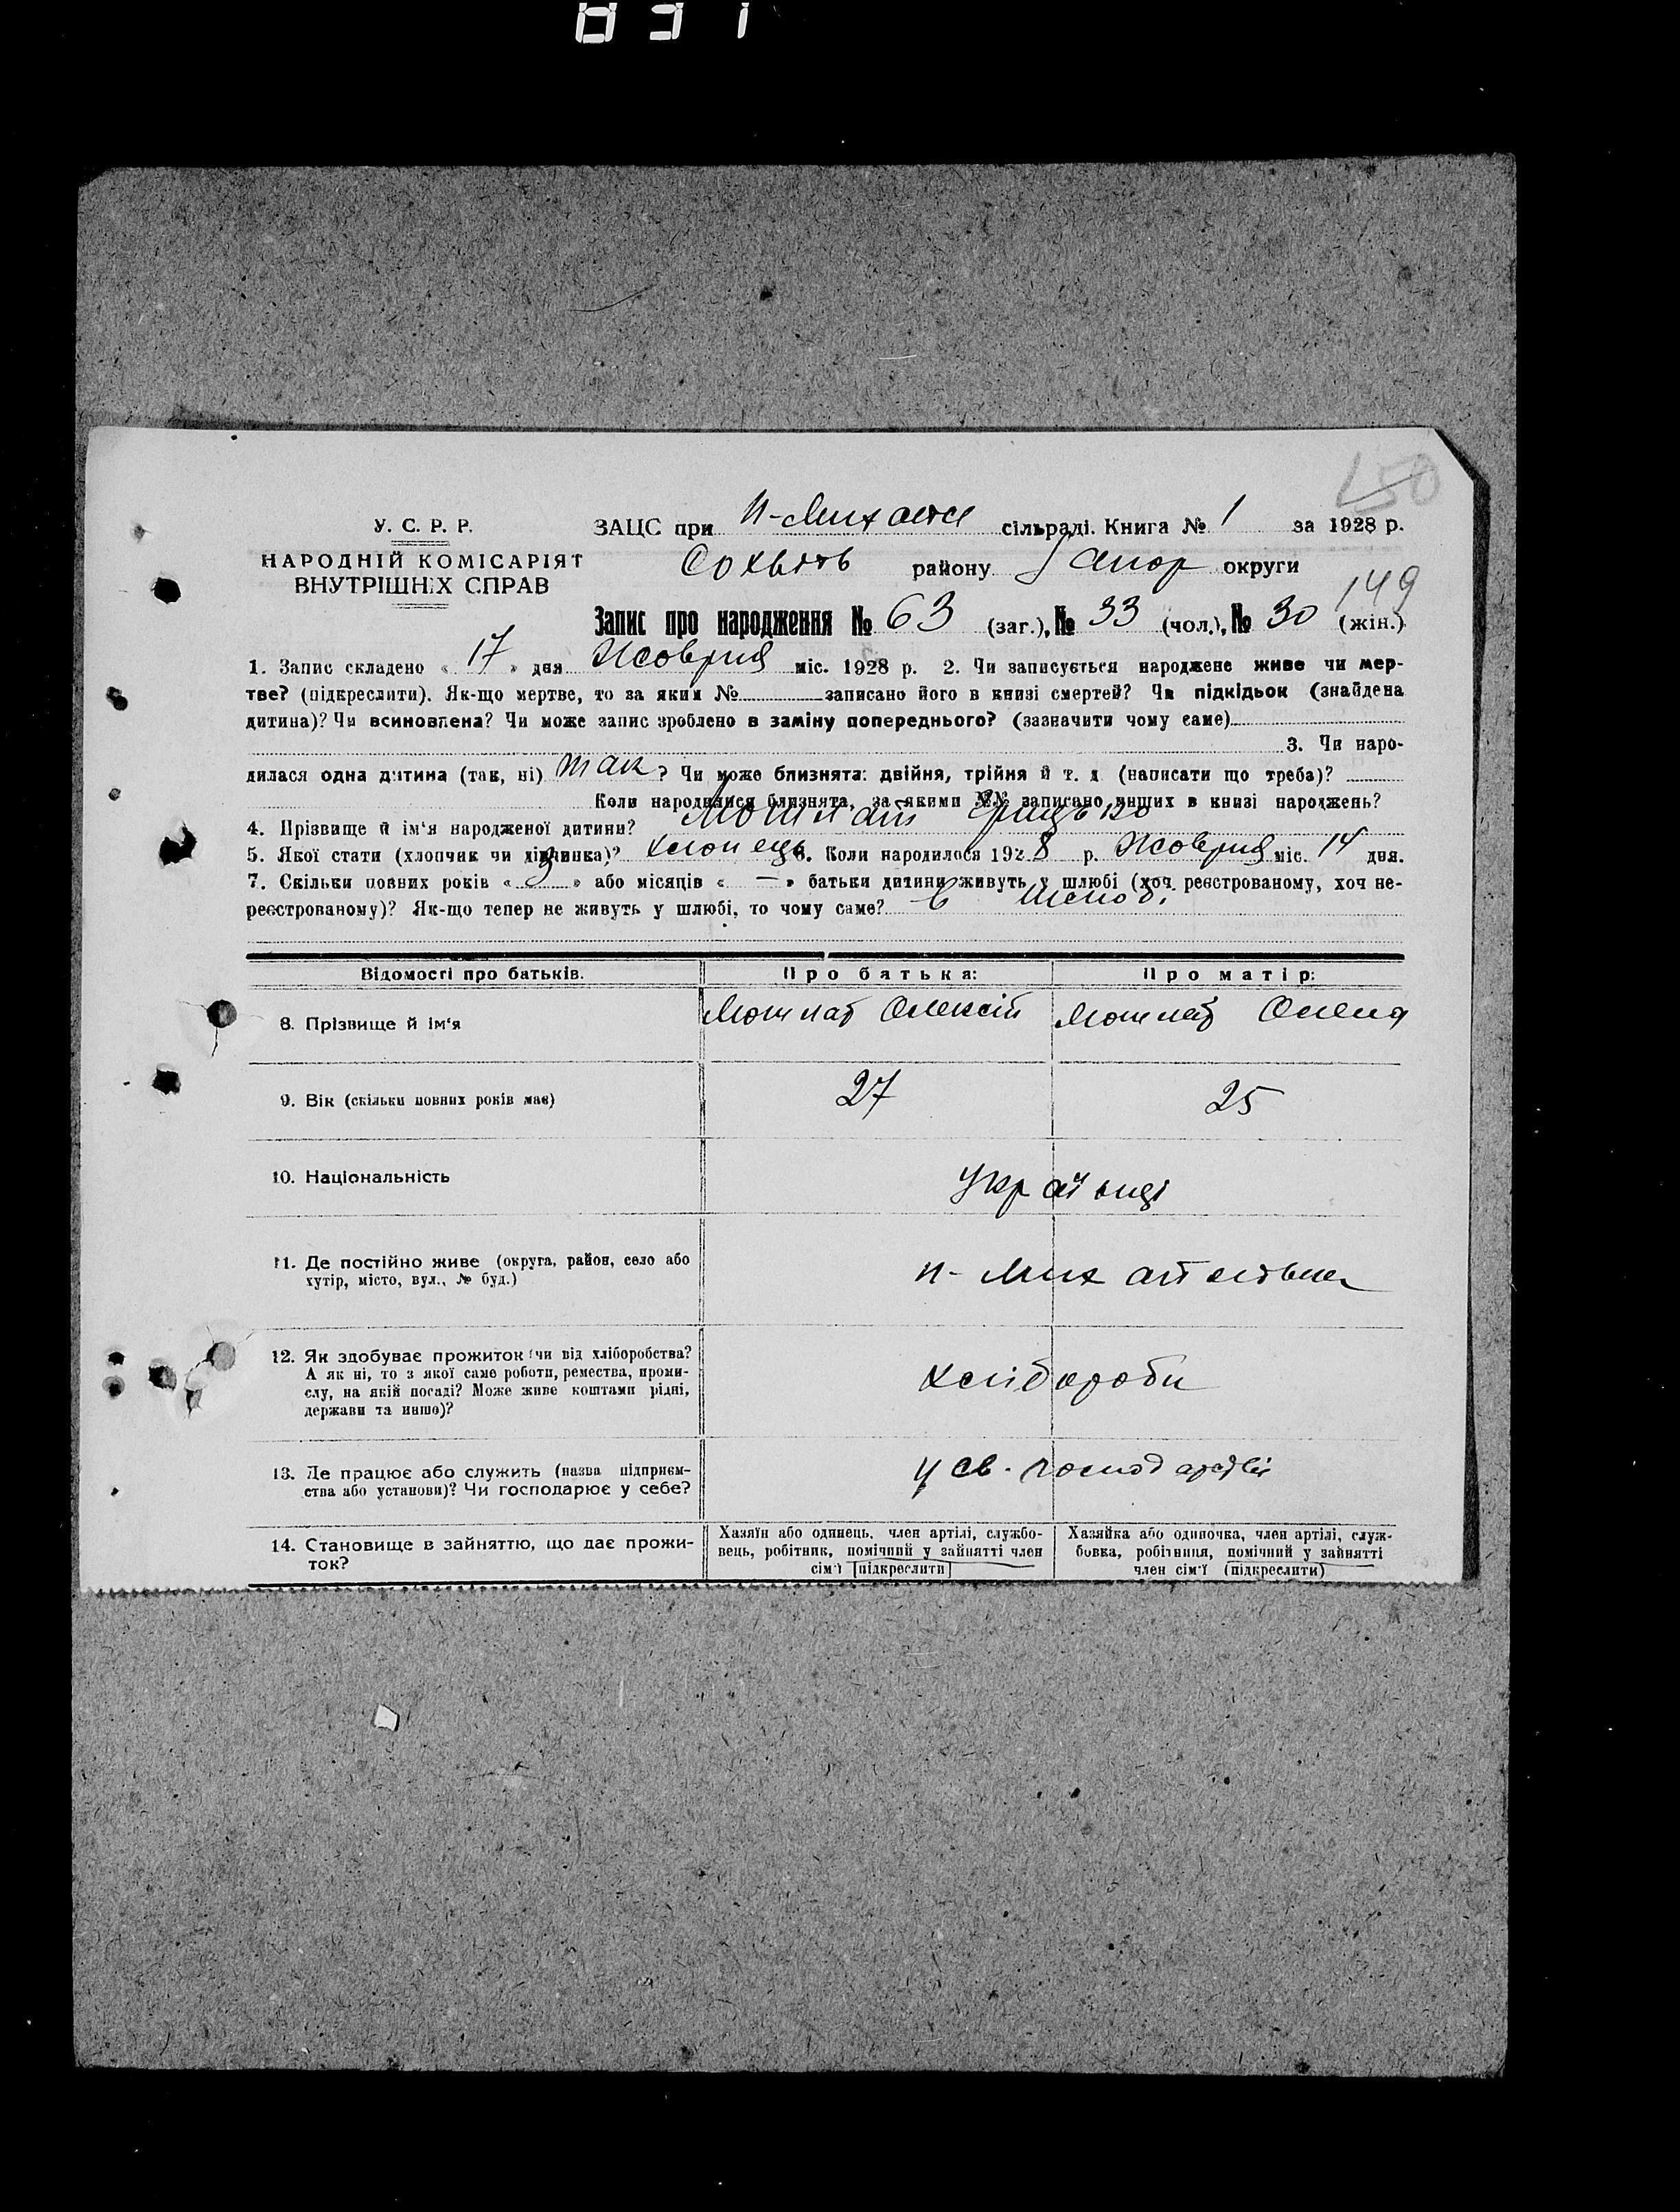 831
150
У. С. Р. Р.
НАРОДНІЙ КОМІСАРІЯТ
ВНУТРІШНІХ СПРАВ
ЗАЦС при Н-Михайл сільраді. Книга № 1 за 1928 р.
району Запор округи
149
Запис про народження № 63 (заг.), № 33 (чол.), № 30 (жін.)
1. Запис складено « 17 » дня Жовтня міс. 1928 р. 2. Чи записується народжене живе чи мер-
тве? (підкреслити). Як-що мертве, то за яким № записано його в книзі смертей? Чи підкідьок (знайдена
дитина)? Чи всиновлена? Чи може запис зроблено в заміну попереднього? (зазначити чому саме)
3. Чи наро-
дилася одна дитина (так, ні) так? Чи може близнята: двійня, трійня й т. д. (написати що треба)?
Коли народилися близнята, за якими №№ записано инших в книзі народжень?
4. Прізвище й ім'я народженої дитини? Грицько
5. Якої стати (хлопчик чи дівчинка)? хлопець 6. Коли народилося 1928 р. Жовтня міс. 14 дня.
7. Скільки повних років « 3 » або місяців « — » батьки дитини живуть у шлюбі (хоч реєстрованому, хоч не-
реєстрованому)? Як-що тепер не живуть у шлюбі, то чому саме? в шлюбі
Відомості про батьків. Про батька: Про матір:
8. Прізвище й ім'я Олексій Олена
9. Вік (скільки повних років має) 27 25
10. Національність Українці
11. Де постійно живе (округа, район, село або
хутір, місто, вул., № буд.) Н-Михайлівка
12. Як здобуває прожиток (чи від хліборобства?
А як ні, то з якої саме роботи, ремества, проми-
слу, на якій посаді? Може живе коштами рідні,
держави та инше)? Хлібороби
13. Де працює або служить (назва підприєм-
ства або установи)? Чи господарює у себе? у св. господарстві
14. Становище в зайняттю, що дає прожи-
ток?
Хазяїн або одинець, член артілі, службо-
вець, робітник, помічний у зайнятті член
сім'ї (підкреслити)
Хазяйка або одиночка, член артілі, служ-
бовка, робітниця, помічний у зайнятті
член сім'ї (підкреслити)